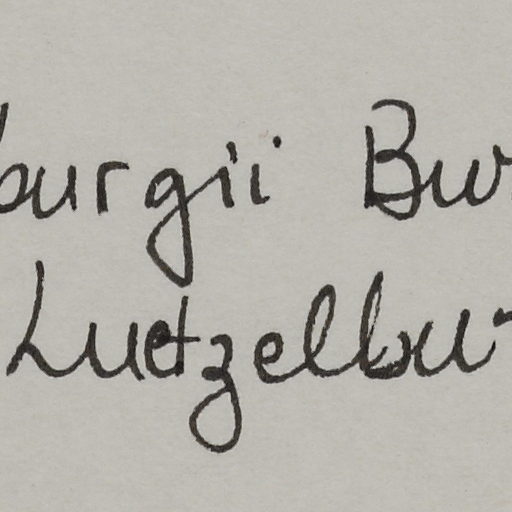 burgii Bur
Luetzelbur